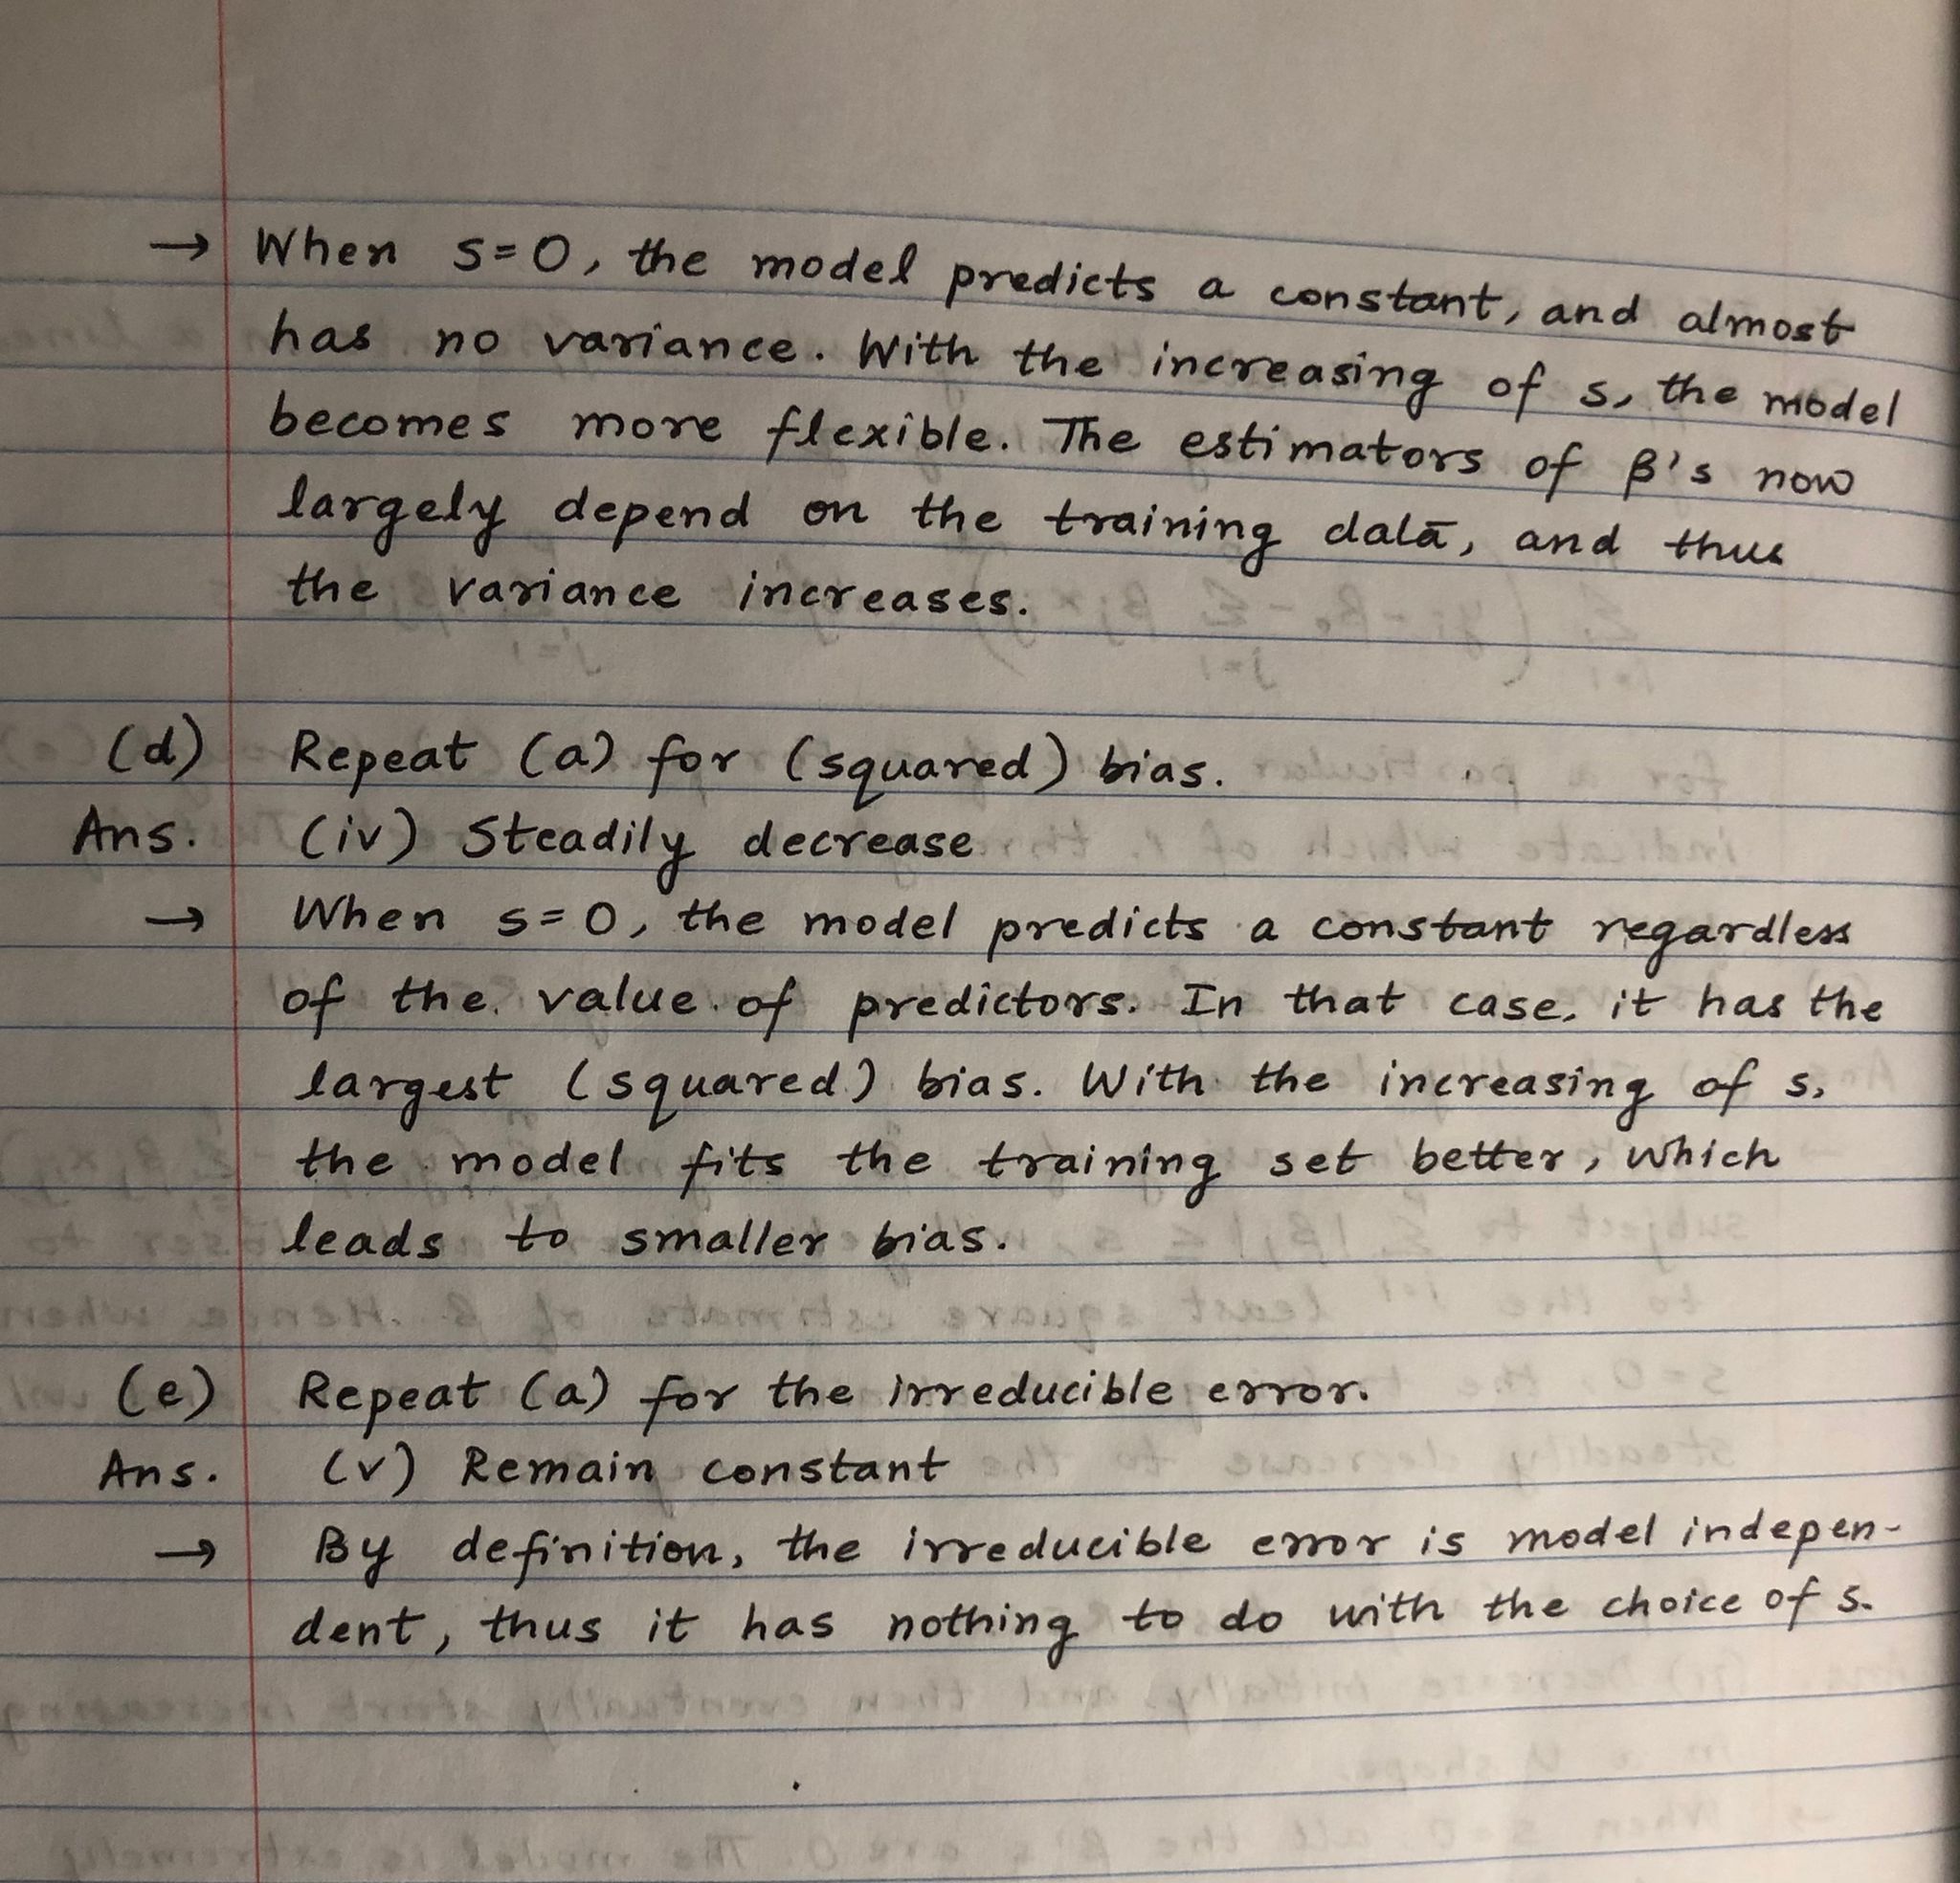 → When s=0, the model predicts a constant, and almost
has no variance. With the increasing of s, the model
becomes more flexible. The estimators of β's now
largely depend on the training data, and thus
the variance increases.
(d) Repeat (a) for (squared) bias.
Ans. (iv) Steadily decrease
→ When s=0, the model predicts a constant regardless
of the value of predictors. In that case, it has the
largest (squared) bias. With the increasing of s,
the model fits the training set better, which
leads to smaller bias.
(e) Repeat (a) for the irreducible error.
Ans. (v) Remain constant
→ By definition, the irreducible error is model indepen-
dent, thus it has nothing to do with the choice of s.